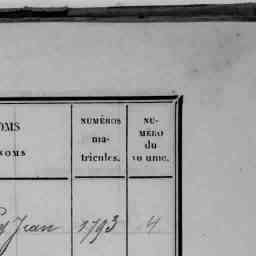 OMS
NOMS
NUMÉROS
ma-
tricules.
NU-
MÉRO
du
vo ume.
Jean 1793 4